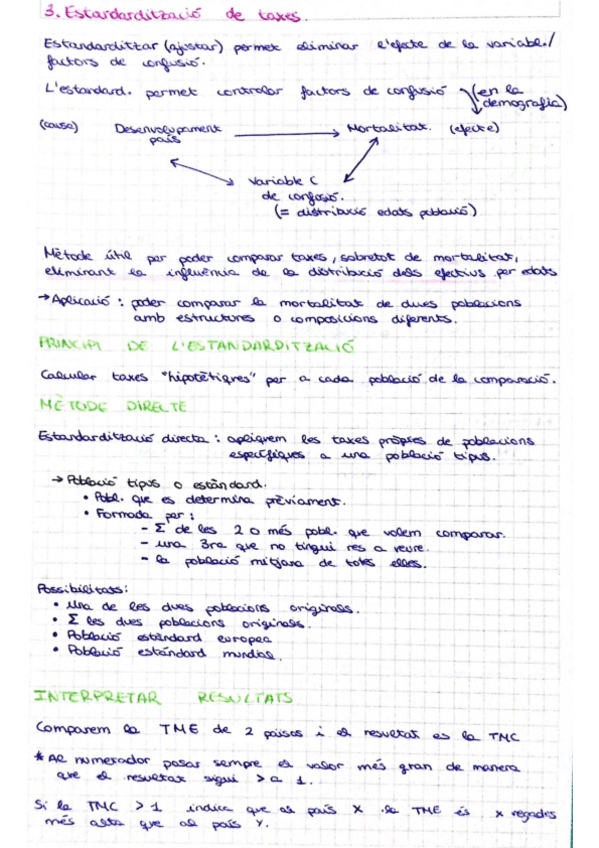 3. Estandardització de taxes.
Estandarditzar (ajustar) permet eliminar l'efecte de la variable/
factors de confusió.
L'estandard. permet controlar factors de confusió (en la
demografia)
(causa) Desenvolupament país → Mortalitat. (efecte)
Variable C
de confusió.
(= distribució edats població)
Mètode útil per poder comparar taxes, sobretot de mortalitat,
eliminant la influència de la distribució dels efectius per edats
→ Aplicació : poder comparar la mortalitat de dues poblacions
amb estructures o composicions diferents.
PRINCIPI DE L'ESTANDARDITZACIÓ
Calcular taxes "hipotètiques" per a cada població de la comparació.
MÈTODE DIRECTE
Estandardització directa : apliquem les taxes pròpies de poblacions
específiques a una població tipus.
→ Població tipus o estàndard.
• Pobl. que es determina prèviament.
• Formada per :
- Σ de les 2 o més pobl. que volem comparar.
- una 3ra que no tingui res a veure.
- la població mitjana de totes elles.
Possibilitats:
• Una de les dues poblacions originals.
• Σ les dues poblacions originals.
• Població estàndard europea
• Població estàndard mundial.
INTERPRETAR RESULTATS
Comparem la TME de 2 països i el resultat es la TMC
* Al numerador posar sempre el valor més gran de manera
que el resultat sigui > a 1.
Si la TMC > 1 indica que al país X la TME és x vegades
més alta que al país Y.